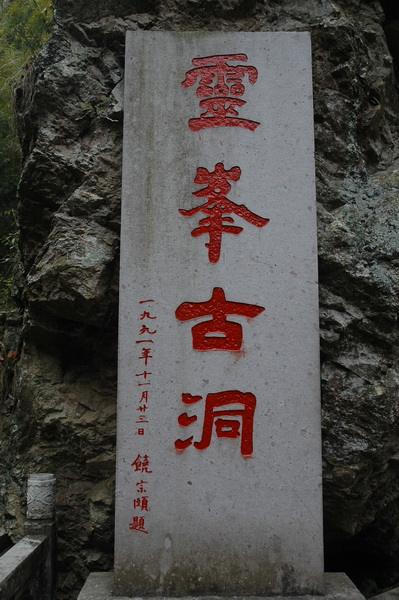 靈峯古洞
一九九一年十一月廿三日 饒宗頤題